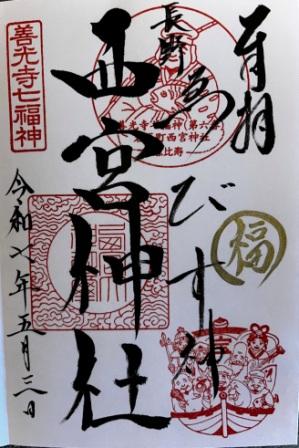 奉拝
長野
ゑびす神
西宮神社
令和七年五月三日
善光寺七福神
善光寺七福神(第六番)
岩石町西宮神社
恵比寿
福